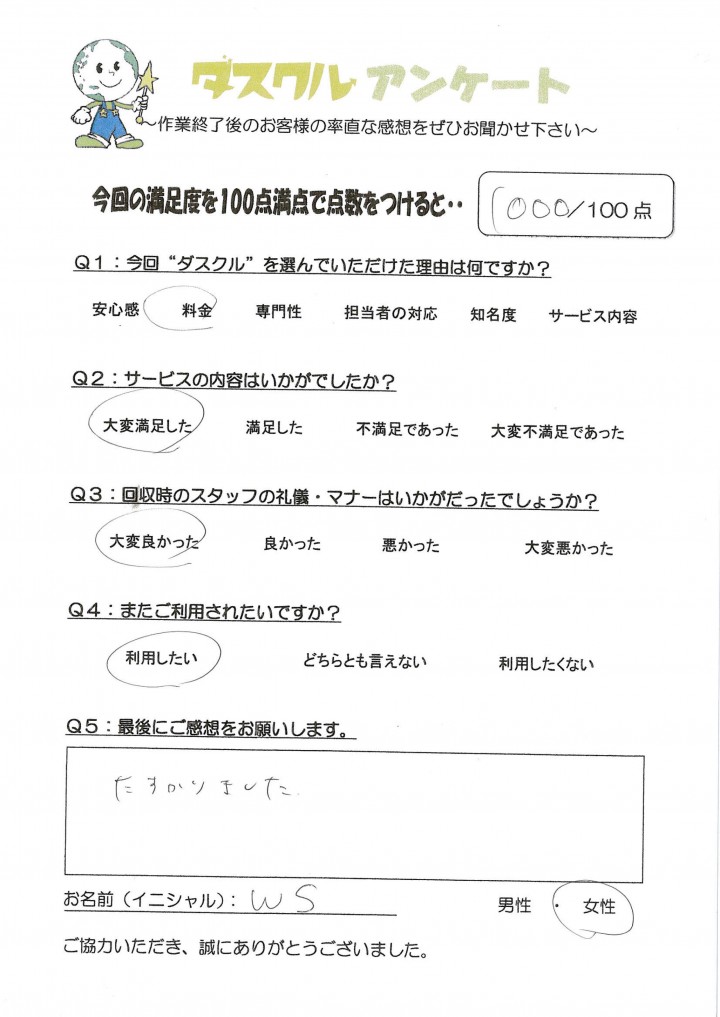 ダスクル アンケート
～作業終了後のお客様の率直な感想をぜひお聞かせ下さい～
今回の満足度を100点満点で点数をつけると‥ 1000/100点
Q1：今回“ダスクル”を選んでいただけた理由は何ですか？
安心感 料金 専門性 担当者の対応 知名度 サービス内容
Q2：サービスの内容はいかがでしたか？
大変満足した 満足した 不満足であった 大変不満足であった
Q3：回収時のスタッフの礼儀・マナーはいかがだったでしょうか？
大変良かった 良かった 悪かった 大変悪かった
Q4：またご利用されたいですか？
利用したい どちらとも言えない 利用したくない
Q5：最後にご感想をお願いします。
たすかりました.
お名前（イニシャル）：WS 男性 ・ 女性
ご協力いただき、誠にありがとうございました。